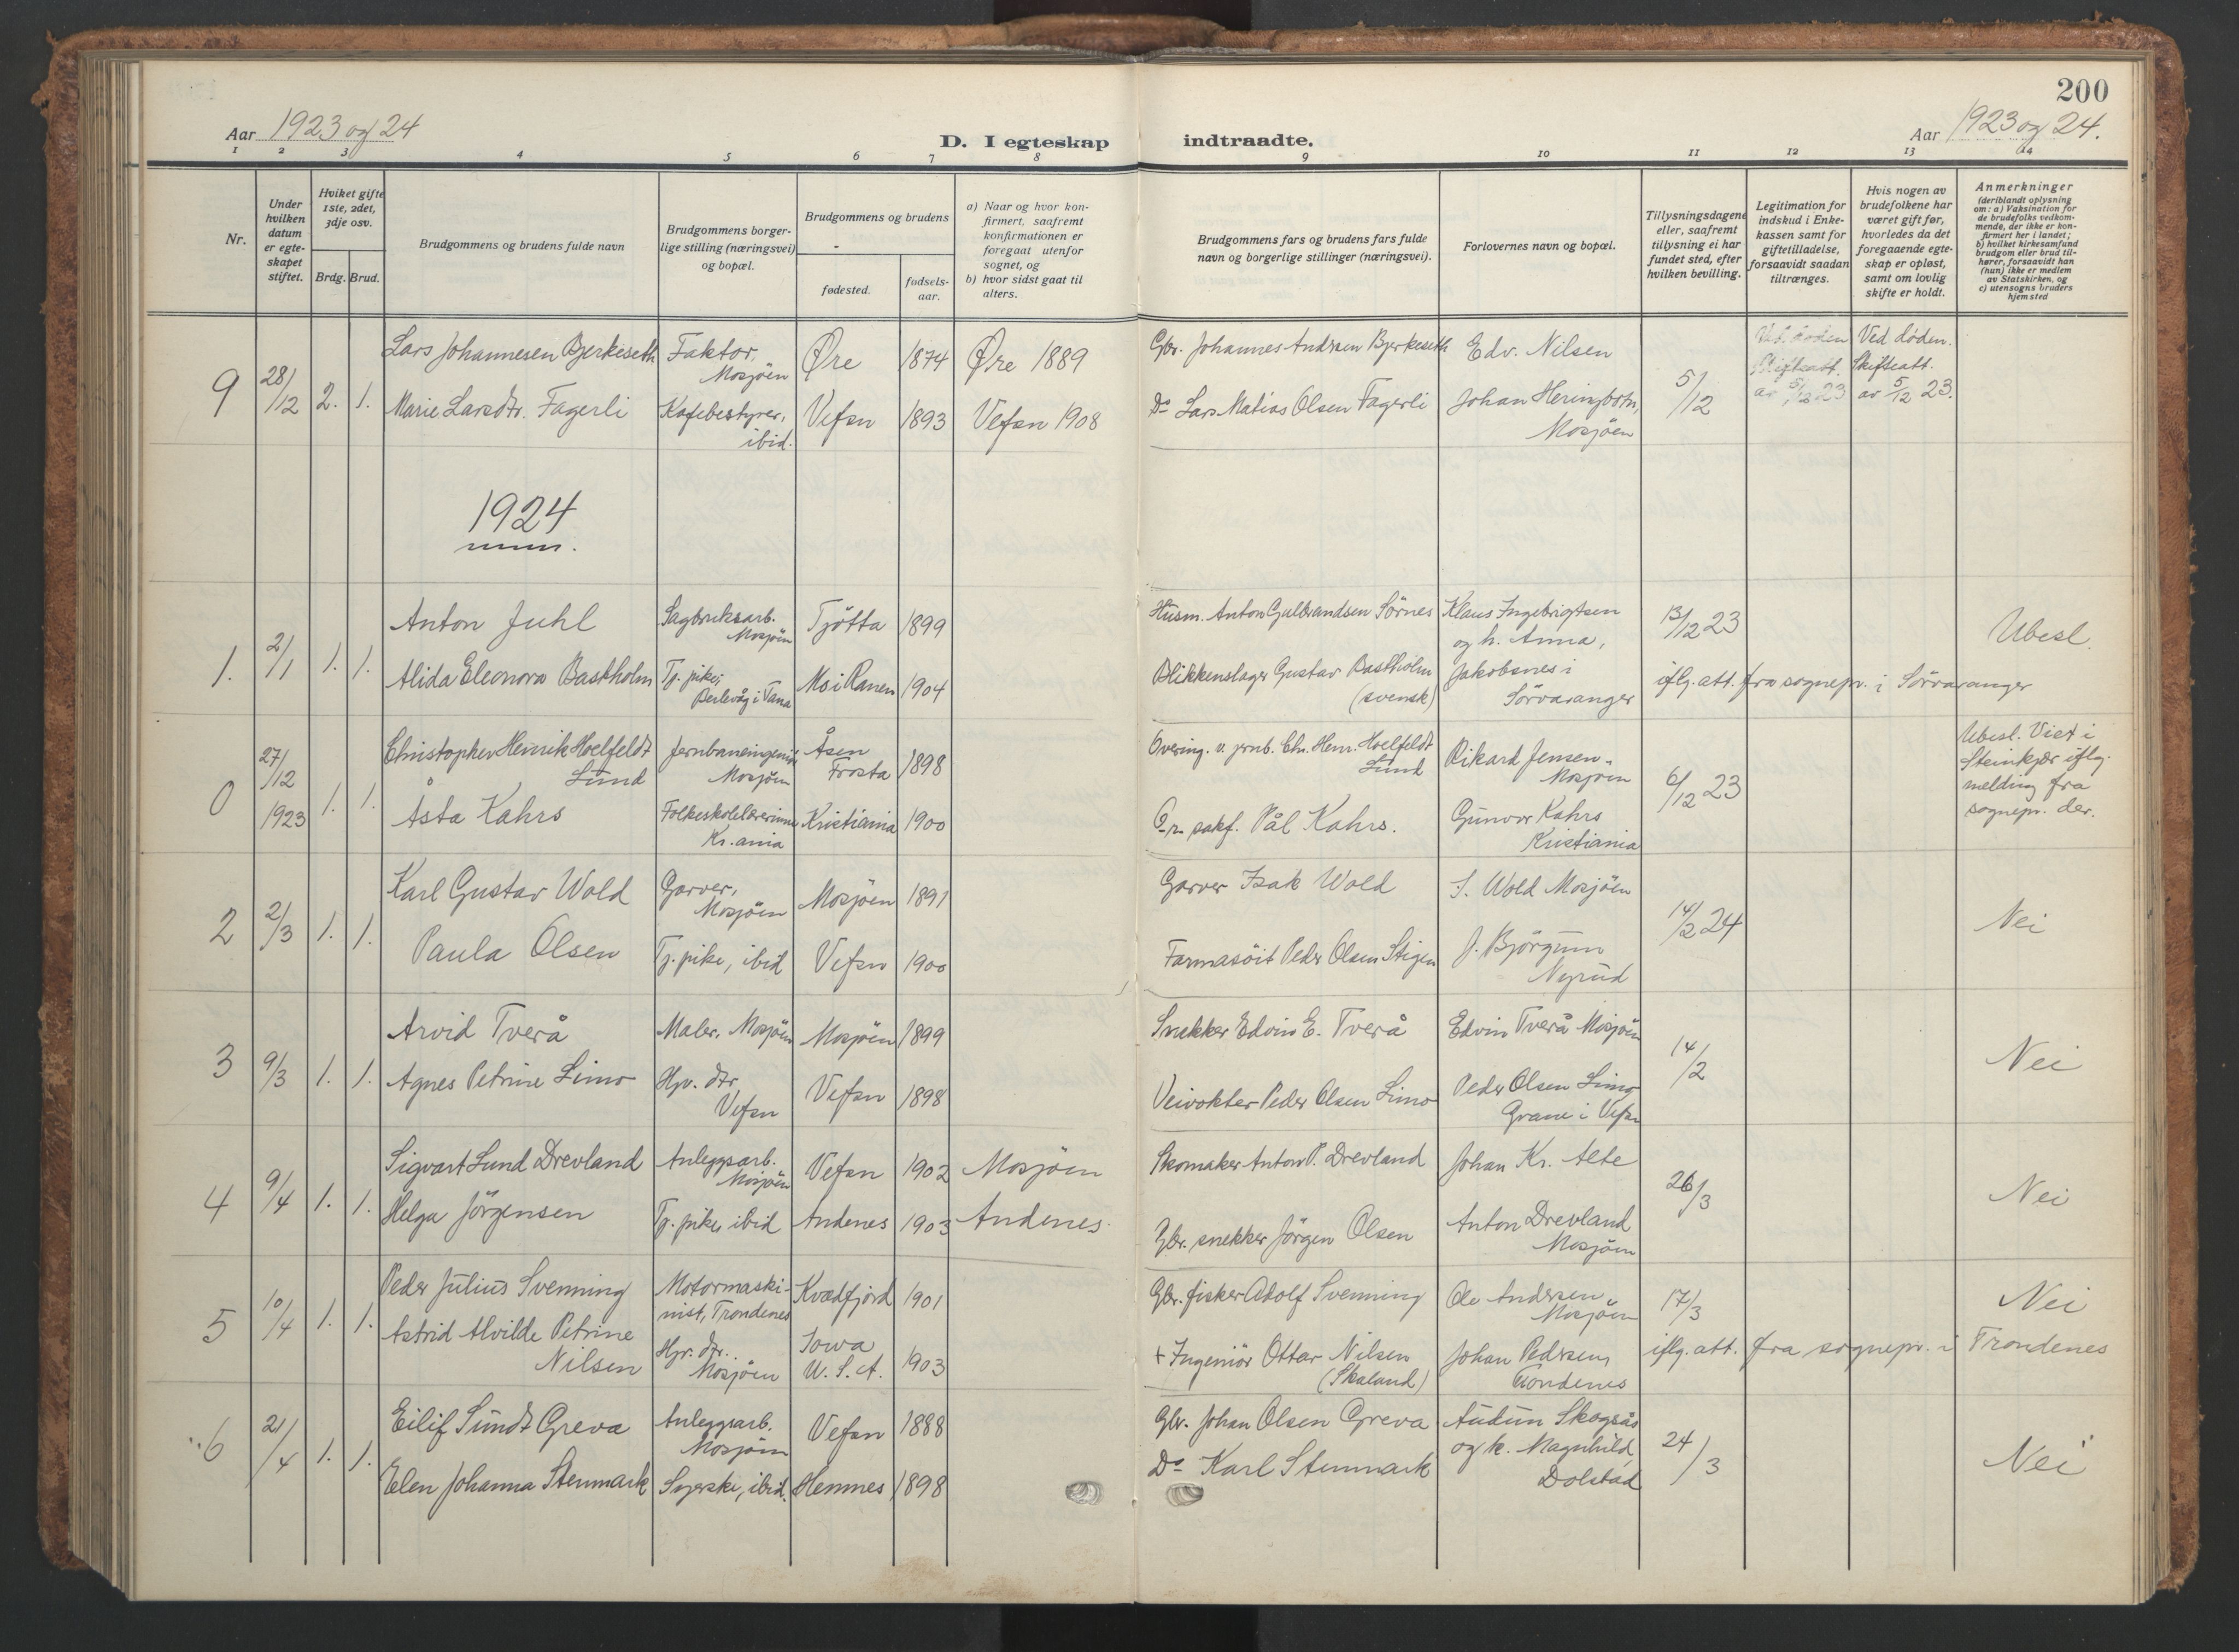 200
Aar 1923 og 24
D. I egteskap indtraadte.
Aar 1923 og 24.
1 2 3 4 5 6 7 8 9 10 11 12 13 14
Nr.
Under hvilken datum er egte-skapet stiftet.
Hvilket gifte 1ste, 2det, 3dje osv.
Brdg. Brud.
Brudgommens og brudens fulde navn
Brudgommens borger-lige stilling (næringsvei) og bopæl.
Brudgommens og brudens
fødested.
fødsels-aar.
a) Naar og hvor kon-firmert, saafremt konfirmationen er foregaat utenfor sognet, og
b) hvor sidst gaat til alters.
Brudgommens fars og brudens fars fulde navn og borgerlige stillinger (næringsvei).
Forlovernes navn og bopæl.
Tillysningsdagene eller, saafremt tillysning ei har fundet sted, efter hvilken bevilling.
Legitimation for indskud i Enke-kassen samt for giftetilladelse, forsaavidt saadan tiltrænges.
Hvis nogen av brudefolkene har været gift før, hvorledes da det foregaaende egte-skap er opløst, samt om lovlig skifte er holdt.
Anmerkninger (deriblandt oplysning om: a) Vaksination for de brudefolks vedkom-mende, der ikke er kon-firmert her i landet; b) hvilket kirkesamfund brudgom eller brud til-hører, forsaavidt han (hun) ikke er medlem av Statskirken, og c) utensogns bruders hjemsted
9 28/12 2. 1.
Lars Johannesen Bjerkeseth Faktor, Mosjöen Øre 1874 Øre 1889
Gbr. Johannes Andrsen Bjerkeseth Edv. Nilsen
5/12
Ved döden. Skifteatt. av 5/12 23
Ved döden. Skifteatt. av 5/12 23.
Marie Larsdtr. Fagerli Kafebestyrer, ibid. Vefsn 1893 Vefsn 1908
Do Lars Matias Olsen Fagerli Johan Heringbotn, Mosjöen
1924
1. 2/1 1. 1.
Anton Juhl Sagbruksarb. Mosjöen Tjötta 1899
Husm. Anton Gulbrandsen Sörnes Klaus Ingebrigtsen og h. Anna,
13/12 23 Ubesl.
Alida Eleonora Bastholm Tj. pike, Berlevåg i Tana Mo i Ranen 1904
Blikkenslager Gustav Bastholm (svensk) Jakobsnes i Sörvaranger
iflg. att. fra sognepr. i Sörvaranger
0 27/12 1923 1. 1.
Christopher Henrik Hoelfeldt Lund Jernbaneingeniör Mosjöen Åsen Frosta 1898
Overing. v. jernb. Chr. Henr. Hoelfeldt Lund Rikard Jensen Mosjöen
6/12 23
Ubesl. Viet i Steinkjer iflg. melding fra sognepr. der.
Åsta Kahrs Folkeskolelærerinne Kr.ania Kristiania 1900
O.r. sakf. Pål Kahrs. Gunvor Kahrs Kristiania
2 2/3 1. 1.
Karl Gustav Wold Garver, Mosjöen Mosjöen 1891
Garver Isak Wold I. Wold Mosjöen
14/2 24 Nei
Paula Olsen Tj. pike, ibid Vefsn 1900
Farmasöit Peder Olsen Stigen J. Björgum Nyrud
3 9/3 1. 1.
Arvid Tverå Maler, Mosjöen Mosjöen 1899
Snekker Edvin E. Tverå Edvin Tverå Mosjöen
14/2 Nei
Agnes Petrine Limo Hjv. dtr, Vefsn Vefsn 1898
Veivokter Peder Olsen Limo Peder Olsen Limo Grane i Vefsn
4 9/4 1. 1.
Sigvart Lund Drevland Anleggsarb. Mosjöen Vefsn 1902 Mosjöen
Skomaker Anton P. Drevland Johan Kr. Alte
26/3 Nei
Helga Jörgensen Tj. pike, ibid Andenes 1903 Andenes.
Gbr. snekker Jörgen Olsen Anton Drevland Mosjöen
5 10/4 1. 1.
Peder Julius Svenning Motormaski-nist, Trondenes Kvædfjord 1901
Gbr. fisker Adolf Svenning Ole Andersen Mosjöen
17/3 Nei
Astrid Alvilde Petrine Nilsen Hjv. dtr. Mosjöen Iowa U.S.A. 1903
+ Ingeniör Ottar Nilsen (Skaland) Johan Pedrsen, Trondenes
iflg. att. fra sognepr. i Trondenes
6 21/4 1. 1.
Eilif Sundt Greva Anleggsarb. Mosjöen Vefsn 1888
Gbr. Johan Olsen Greva Audun Skogsås og h. Magnhild, Dolstad
24/3 Nei
Elen Johanna Stenmark Syerske, ibid. Hemnes 1898
Do Karl Stenmark